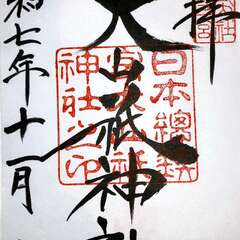 拝
大山祇神社
日本總鎮
守大山祇
神社之印
和七年十一月